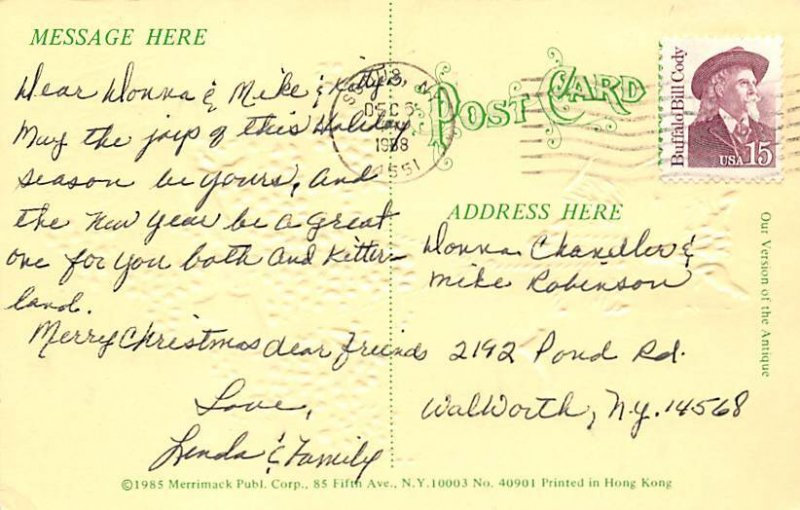 MESSAGE HERE
Dear Donna & Mike &
May the joys of this Holiday
Season be yours, And
the New Year be a great
one for you both And Kitter-
land.
Merry Christmas dear friends
Love,
Linda & Family
POST CARD
DEC 6
1988
551
Buffalo Bill Cody
USA 15
ADDRESS HERE
Donna Chandler &
Mike Robinson
2192 Pond Rd.
WalWorth, N.Y. 14568
Our Version of the Antique
©1985 Merrimack Publ. Corp., 85 Fifth Ave., N.Y. 10003 No. 40901 Printed in Hong Kong